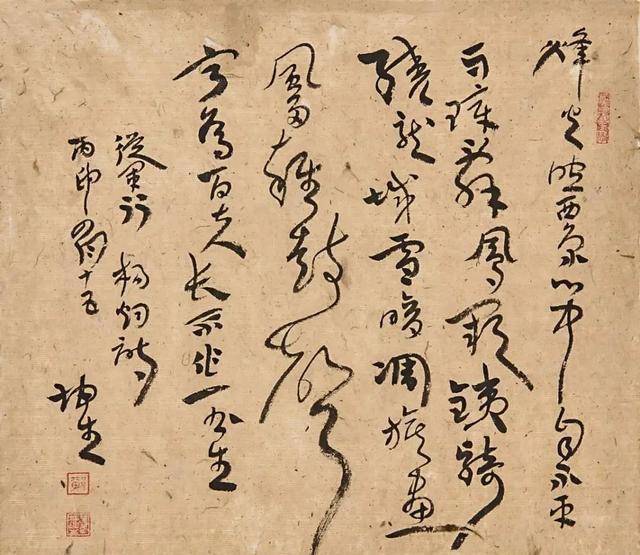 烽火照西京心中自不平
牙璋辞鳳闕鐵騎
繞龍城雪暗凋旗畫
風多雜鼓聲
宁為百夫长勝作一书生
從軍行 楊炯詩
十五
坤生